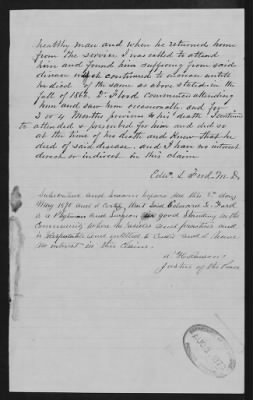 healthy man and when he returned home
from the service. I was called to attend
him and found him suffering from said
disease which continued to increase untill
he died of the same as above stated in the
fall of 1862. Dr Flood commenced attending
him and saw him occasionally and for
3 or 4 Months previous to his death I continued
to attended & prescribed for him and did so
at the time of his death and Know that he
died of said disease. and I have no interest
direct or indirect in this claim
Edw. L Ford M. D.
Subscribed and Sworn before me this day
May 1870 and I certify that said Edward L. Ford
is a Physician and Surgeon in good Standing in the
Community where he resides and practices and
is respectable and entitled to Credit and I have
no interest in this Claim.
Justice of the Peace
AUG